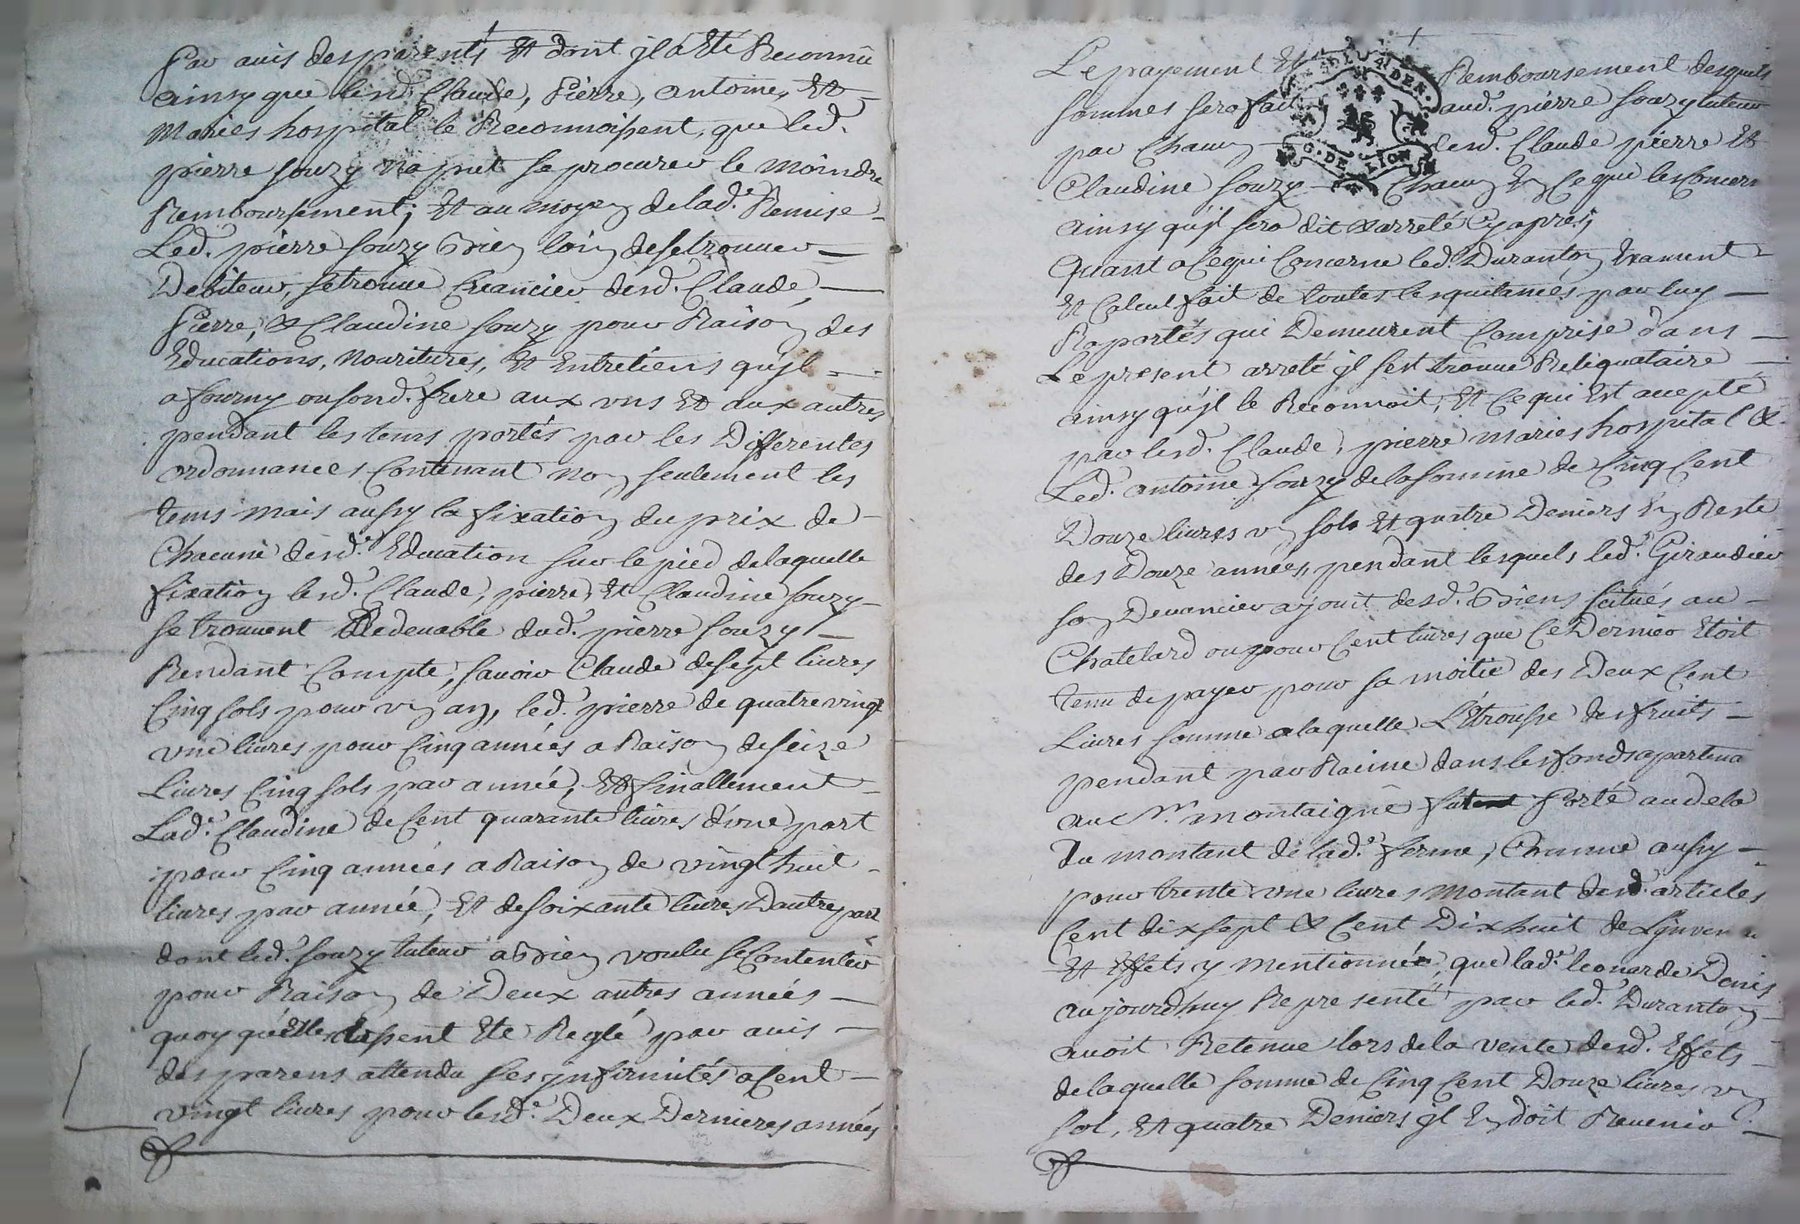 Par avis des parents Et dont jl a Eté Reconnu
ainsy que lesd. Claude, Pierre, antoine, Et
Maries hospital le Reconnoissent, que led.
pierre souzy na put se procurer le moindre
Remboursement; Et au moyen de lad.e Remise
Led. pierre souzy Bien loin de se trouver
Debiteur, se trouve Creancier desd. Claude,
Pierre, & Claudine souzy pour Raison des
Educations, Nouritures, Et Entretiens qu'jl
a fourny ou sond. frere aux uns Et aux autres
pendant les tems portés par les Differentes
ordonnances Contenant Non seulement les
tems mais aussy la fixation du prix de
Chacune desd.e Education sur le pied de laquelle
fixation lesd. Claude, pierre, Et Claudine souzy
se trouvent Redevable dud. pierre souzy
Rendant Compte, savoir Claude de sept livres
Cinq sols pour un an, led. pierre de quatre vingt
une livres pour Cinq années a Raison de seize
Livres Cinq sols par année, Et finallement
Lad.e Claudine de Cent quarante livres d'une part
pour Cinq années a Raison de vingt huit
livres par année, Et de soixante livres Dautre part
dont led. souzy tuteur a Bien voulu se Contenter
pour Raison de Deux autres années
quoy qu'Elles Eussent Eté Reglé par avis
des parens attendu ses jnfirmités a Cent
vingt livres pour lesd.e Deux Dernieres années
Le payement Et Remboursement desquels
sommes sera fait aud. pierre souzy tuteur
par Chacun lesd. Claude pierre Et
Claudine souzy Chacun En Ce qui les Concern
ainsy qu'jl sera dit & arreté Cy aprés,
Quant a Ce qui Concerne led. Duranton Exament
Et Calcul fait de toutes les quitances par luy
Raportés qui Demeurent Comprise dans
Le present arreté jl s'est trouvé Reliquataire
ainsy qu'jl le Reconnoit, Et Ce qui Est accepté
par lesd. Claude, pierre maries hospital &
Led. antoine souzy de la somme de Cinq Cent
Douze livres un sols Et quatre Deniers En Reste
des Douze années, pendant lesquels led. Giraudier
son Devancier a jouit desd. Biens scitués au
Chatelard ou pour Cent livres que Ce Dernier Etoit
tenu de payer pour sa moitié des Deux Cent
Livres somme a laquelle L'Etrousse des fruits
pendant par Racine dans les fonds apartena
au Sr. montaigne fut Porté au dela
du montant de lad.e ferme, Comme aussy
pour trente une livres montant desd. articles
Cent dix sept & Cent Dix huit de L'jnven
Et Effets y mentionnés, que lad.e leonarde Denis
aujourdhuy Representé par led. Duranton
avoit Retenue lors de la vente desd. Effets
de laquelle somme de Cinq Cent Douze livres un
sol, Et quatre Deniers jl En doit Revenir
G. DE LION